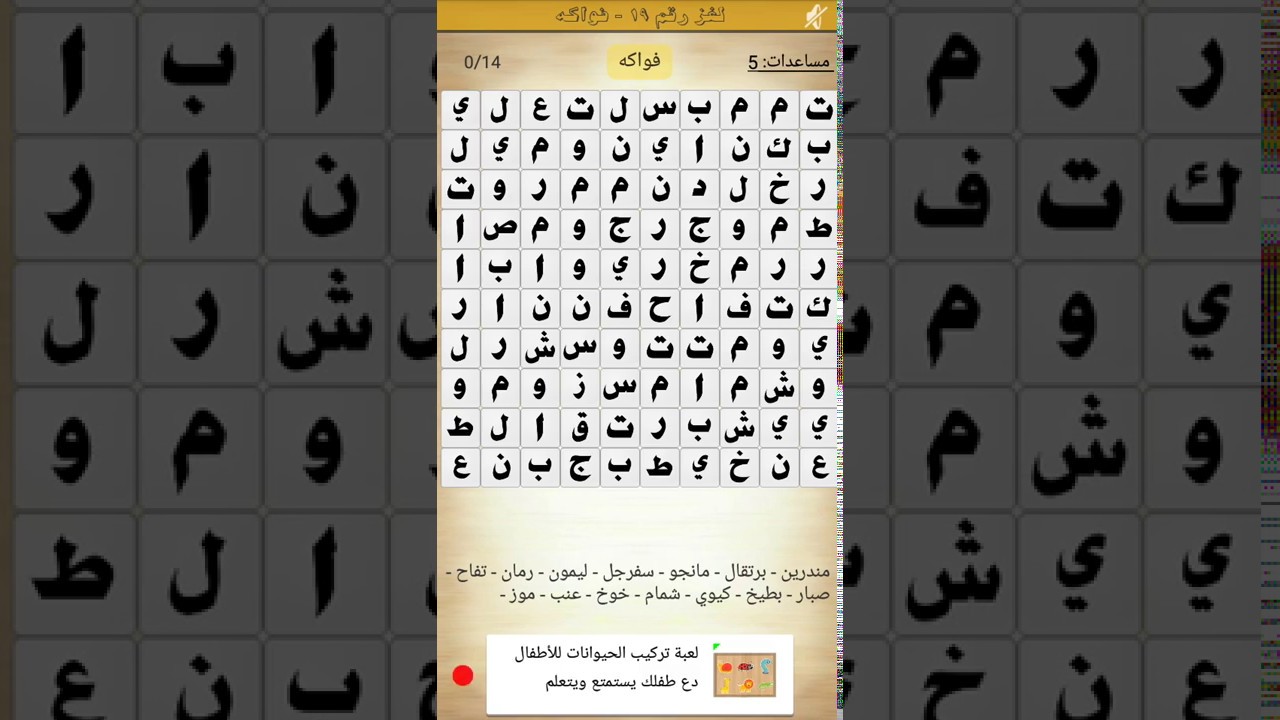 لغز رقم ١٩ - فواكه
مساعدات: 5 فواكه 0/14
ت م م ب س ل ت ع ل ي
ب ك ن ا ي ن و م ي ل
ر خ ل د ن م م ر و ت
ط م و ج ر ج و م ص ا
ر ر م خ ر ي و ا ب ا
ك ت ف ا ح ف ن ن ا ر
ي و م ت ت و س ش ر ل
و ش م ا م س ز و م و
ي ي ش ب ر ت ق ا ل ط
ع ن خ ي ط ب ج ب ن ع
مندرين - برتقال - مانجو - سفرجل - ليمون - رمان - تفاح -
صبار - بطيخ - كيوي - شمام - خوخ - عنب - موز -
لعبة تركيب الحيوانات للأطفال
دع طفلك يستمتع ويتعلم